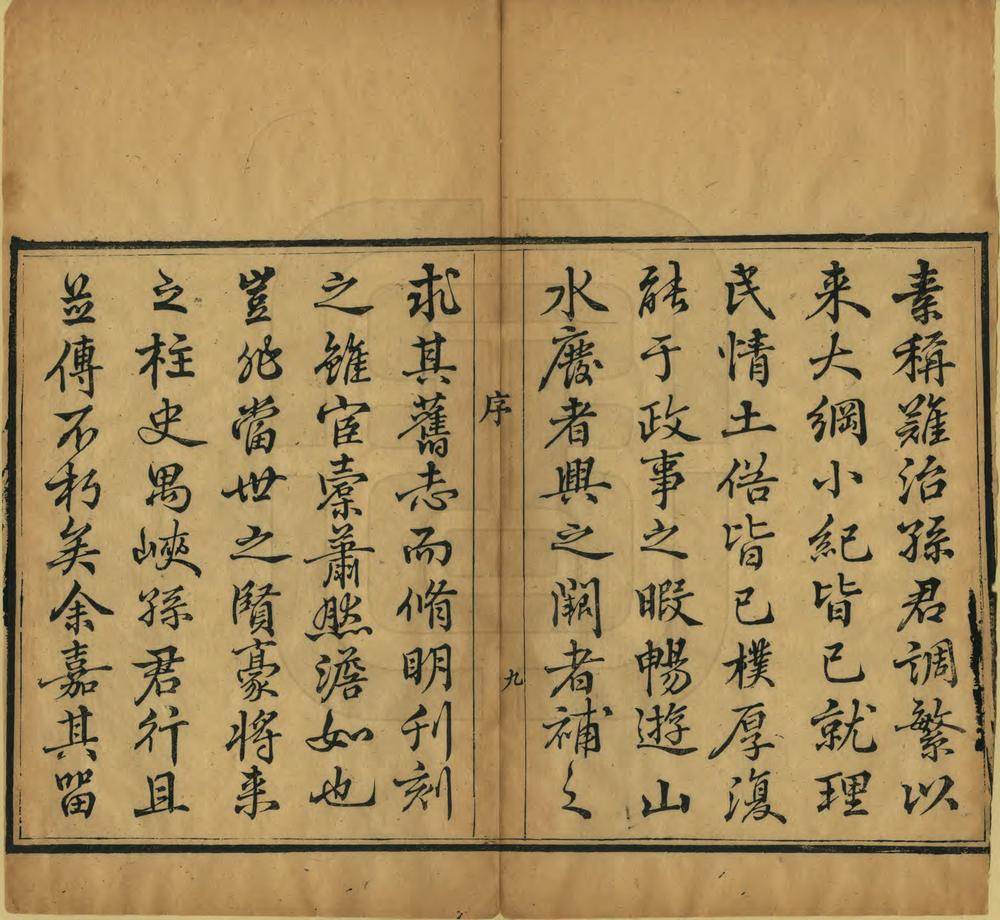 素稱難治孫君調繁以
来大綱小紀皆已就理
民情土俗皆已樸厚復
能于政事之暇暢遊山
水廢者興之闕者補之
序
九
求其舊志而脩明刊刻
之雖宦橐蕭然澹如也
豈非當世之賢豪将来
之柱史禺峽孫君行且
並傳不朽矣余嘉其留